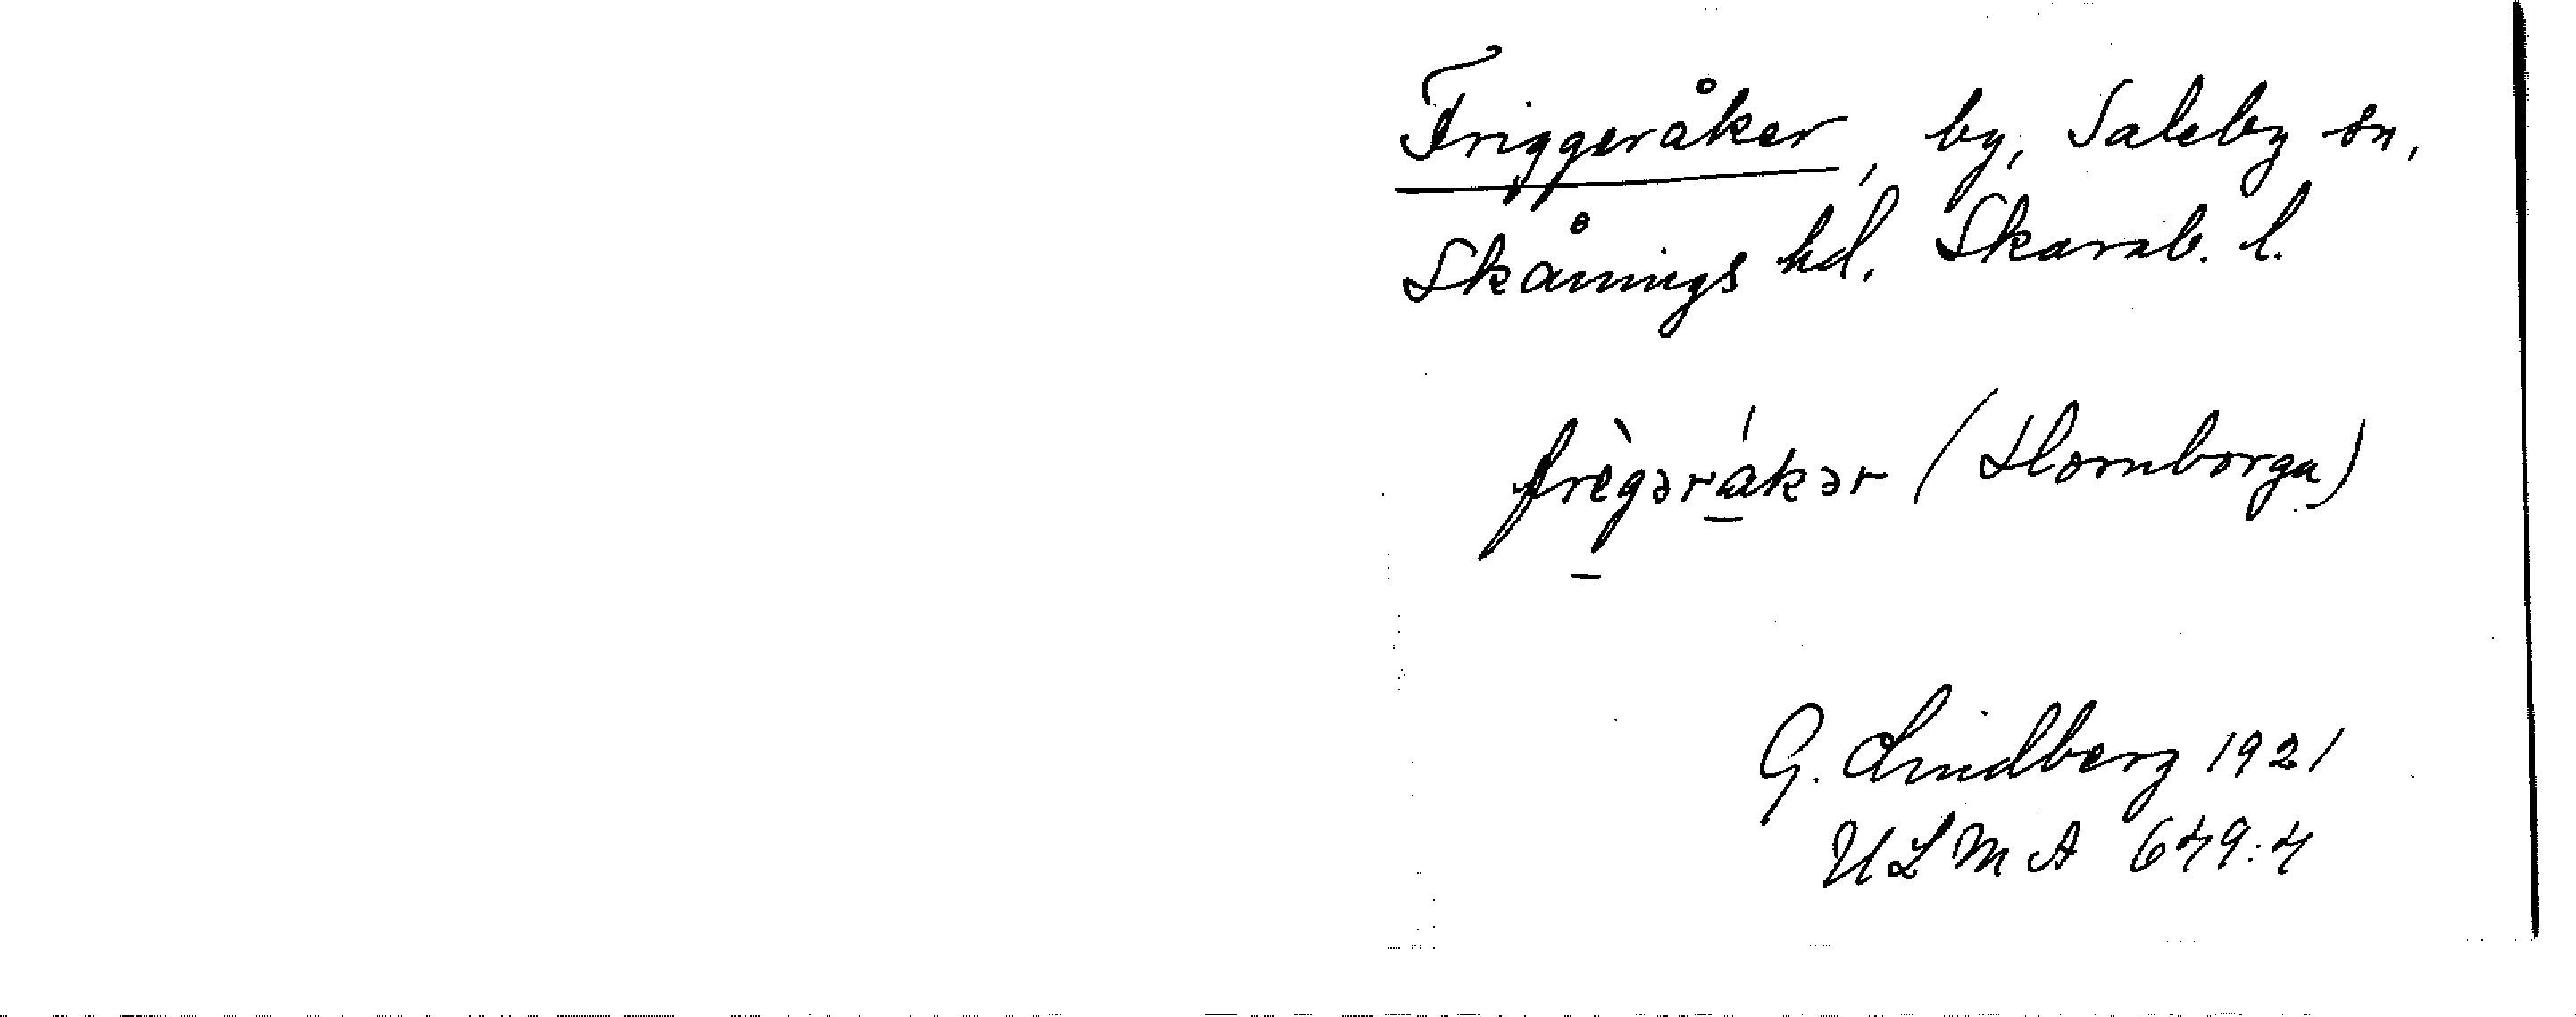 Friggeråker, by, Saleby sn,
Skånings hd, Skarab. l.
frìgərákər (Hornborga)
G. Lindberg 1921
ULMA 649:4